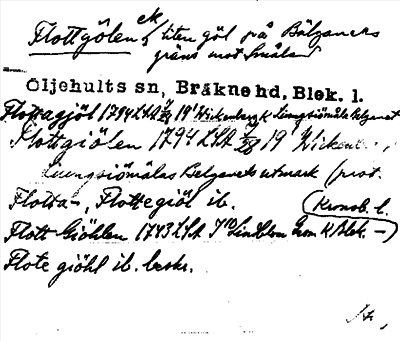 Flottgölen, liten göl på Bälganets
gräns mot Småland
Oljehults sn, Bräkne hd, Blek. l.
Flottagjöl 1794 LSA 19 Wickenberg K Ljungsjömåla Belganet
Flottgiölen 1794 LSA 19 Wickenb
Liungsiömålas Belganets utmark (prot.
Flotta-, Flottegiöl ib. (Kronob. l.
Flott Giöhlen 1743 LSA J Lindblom K Blek. -)
Flote giöhl ib. beskr.